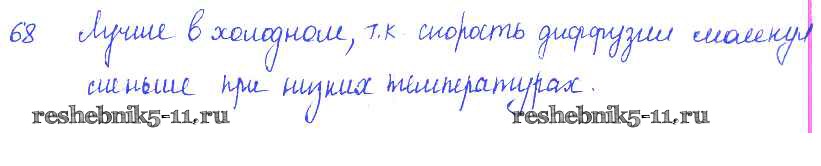 68 Лучше в холодном, т.к скорость диффузии молекул
меньше при низких температурах.
reshebnik5-11.ru reshebnik5-11.ru